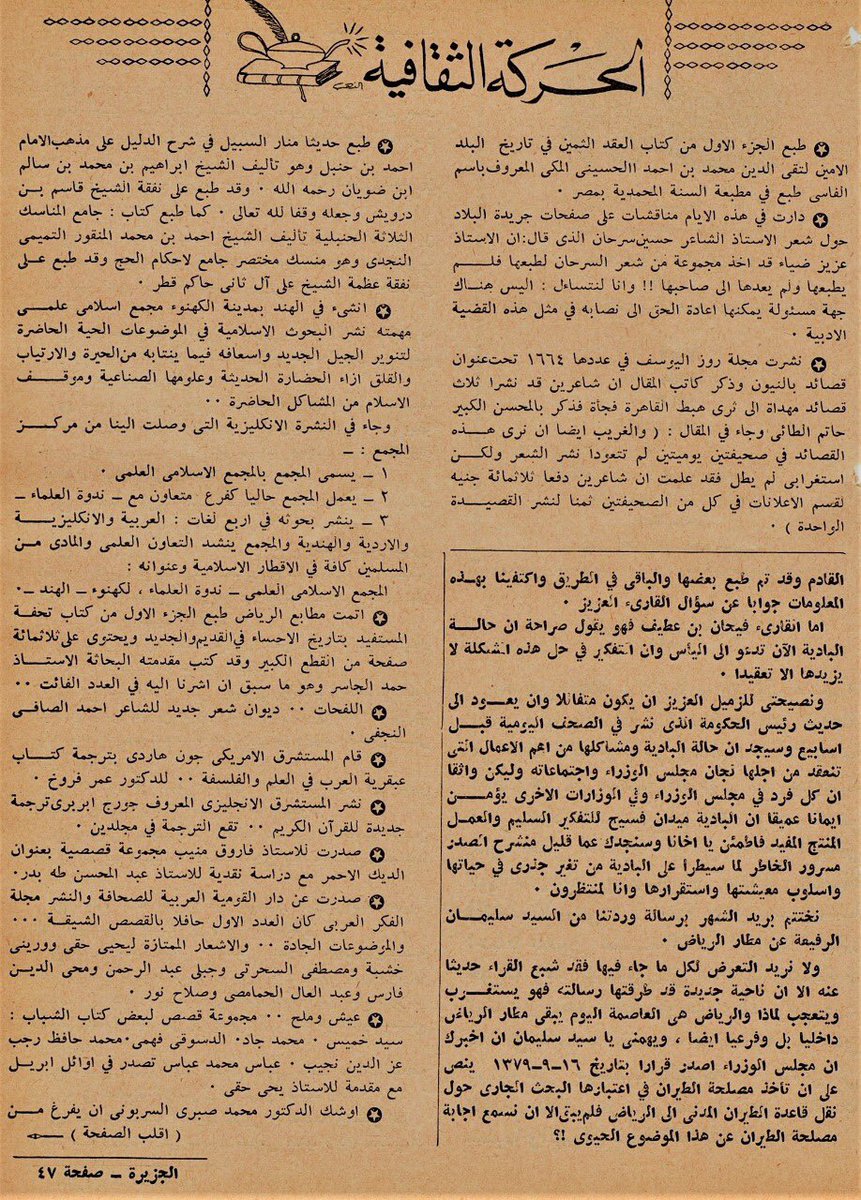 الحركة الثقافية
طبع الجزء الاول من كتاب العقد الثمين في تاريخ البلد
الامين لتقى الدين محمد بن احمد االحسينى المكى المعروف باسم
الفاسى طبع في مطبعة السنة المحمدية بمصر ٠
دارت في هذه الايام مناقشات على صفحات جريدة البلاد
حول شعر الاستاذ الشاعر حسين سرحان الذى قال: ان الاستاذ
عزيز ضياء قد اخذ مجموعة من شعر السرحان لطبعها فلم
يطبعها ولم يعدها الى صاحبها !! وانا لنتساءل : اليس هناك
جهة مسئولة يمكنها اعادة الحق الى نصابه في مثل هذه القضية
الادبية ٠
نشرت مجلة روز اليوسف في عددها ١٦٦٤ تحت عنوان
قصائد بالنيون وذكر كاتب المقال ان شاعرين قد نشرا ثلاث
قصائد مهداة الى ثرى هبط القاهرة فجأة فذكر بالمحسن الكبير
حاتم الطائى وجاء في المقال : ( والغريب ايضا ان نرى هذه
القصائد في صحيفتين يوميتين لم تتعودا نشر الشعر ولكن
استغرابى لم يطل فقد علمت ان شاعرين دفعا ثلاثمائة جنيه
لقسم الاعلانات في كل من الصحيفتين ثمنا لنشر القصيدة
الواحدة ) ٠
القادم وقد تم طبع بعضها والباقى في الطريق واكتفينا بهذه
المعلومات جوابا عن سؤال القارىء العزيز ٠
اما القارىء فيحان بن عطيف فهو يقول صراحة ان حالة
البادية الآن تدعو الى اليأس وان التفكير في حل هذه المشكلة لا
يزيدها الا تعقيدا ٠
ونصيحتى للزميل العزيز ان يكون متفائلا وان يعود الى
حديث رئيس الحكومة الذى نشر في الصحف اليومية قبل
اسابيع وسيجد ان حالة البادية ومشاكلها من اهم الاعمال التى
تنعقد من اجلها لجان مجلس الوزراء واجتماعاته وليكن واثقا
ان كل فرد في مجلس الوزراء وفي الوزارات الاخرى يؤمن
ايمانا عميقا ان البادية ميدان فسيح للتفكير السليم والعمل
المنتج المفيد فاطمئن يا اخانا وستجدك عما قليل منشرح الصدر
مسرور الخاطر لما سيطرأ على البادية من تغير جذرى في حياتها
واسلوب معيشتها واستقرارها وانا لمنتظرون ٠
نختتم بريد الشهر برسالة وردتنا من السيد سليمان
الرفيعة عن مطار الرياض ٠
ولا نريد التعرض لكل ما جاء فيها فقد شبع القراء حديثا
عنه الا ان ناحية جديدة قد طرقتها رسالته فهو يستغرب
ويتعجب لماذا والرياض هى العاصمة اليوم يبقى مطار الرياض
داخليا بل وفرعيا ايضا ، ويهمنى يا سيد سليمان ان اخبرك
ان مجلس الوزراء اصدر قرارا بتاريخ ١٦-٩-١٣٧٩ ينص
على ان تأخذ مصلحة الطيران في اعتبارها البحث الجارى حول
نقل قاعدة الطيران المدنى الى الرياض فلم يبق الا ان نسمع اجابة
مصلحة الطيران عن هذا الموضوع الحيوى !؟
طبع حديثا منار السبيل في شرح الدليل على مذهب الامام
احمد بن حنبل وهو تأليف الشيخ ابراهيم بن محمد بن سالم
ابن ضويان رحمه الله ٠ وقد طبع على نفقة الشيخ قاسم بن
درويش وجعله وقفا لله تعالى ٠ كما طبع كتاب : جامع المناسك
الثلاثة الحنبلية تأليف الشيخ احمد بن محمد المنقور التميمى
النجدى وهو منسك مختصر جامع لاحكام الحج وقد طبع على
نفقة عظمة الشيخ على آل ثانى حاكم قطر ٠
انشىء في الهند بمدينة الكهنوء مجمع اسلامى علمى
مهمته نشر البحوث الاسلامية في الموضوعات الحية الحاضرة
لتنوير الجيل الجديد واسعافه فيما ينتابه من الحيرة والارتياب
والقلق ازاء الحضارة الحديثة وعلومها الصناعية وموقف
الاسلام من المشاكل الحاضرة ٠٠
وجاء في النشرة الانكليزية التى وصلت الينا من مركز
المجمع : ــ
١ ــ يسمى المجمع بالمجمع الاسلامى العلمى ٠
٢ ــ يعمل المجمع حاليا كفرع متعاون مع ــ ندوة العلماء ــ
٣ ــ ينشر بحوثه في اربع لغات : العربية والانكليزية
والاردية والهندية والمجمع ينشد التعاون العلمى والمادى من
المسلمين كافة في الاقطار الاسلامية وعنوانه :
المجمع الاسلامى العلمى ــ ندوة العلماء ، لكهنوء ــ الهند ــ٠
اتمت مطابع الرياض طبع الجزء الاول من كتاب تحفة
المستفيد بتاريخ الاحساء في القديم والجديد ويحتوى على ثلاثمائة
صفحة من القطع الكبير وقد كتب مقدمته البحاثة الاستاذ
حمد الجاسر وهو ما سبق ان اشرنا اليه في العدد الفائت ٠٠
اللفحات ٠٠ ديوان شعر جديد للشاعر احمد الصافى
النجفى ٠
قام المستشرق الامريكى جون هاردى بترجمة كتاب
عبقرية العرب في العلم والفلسفة ٠٠ للدكتور عمر فروخ ٠
نشر المستشرق الانجليزى المعروف جورج اربرى ترجمة
جديدة للقرآن الكريم ٠٠ تقع الترجمة في مجلدين ٠
صدرت للاستاذ فاروق منيب مجموعة قصصية بعنوان
الديك الاحمر مع دراسة نقدية للاستاذ عبد المحسن طه بدر٠
صدرت عن دار القومية العربية للصحافة والنشر مجلة
الفكر العربى كان العدد الاول حافلا بالقصص الشيقة ٠٠٠
والموضوعات الجادة ٠٠ والاشعار الممتازة ليحيى حقى وورينى
خشبة ومصطفى السحرتى وجيلى عبد الرحمن ومحى الدين
فارس وعبد العال الحمامصى وصلاح نور ٠
عيش وملح ٠٠ مجموعة قصص لبعض كتاب الشباب :
سيد خميس ٠ محمد جاد٠ الدسوقى فهمى٠ محمد حافظ رجب
عز الدين نجيب ٠ عباس محمد عباس تصدر في اوائل ابريل
مع مقدمة للاستاذ يحى حقى ٠
اوشك الدكتور محمد صبرى السربونى ان يفرغ من
( اقلب الصفحة )
الجزيرة ــ صفحة ٤٧